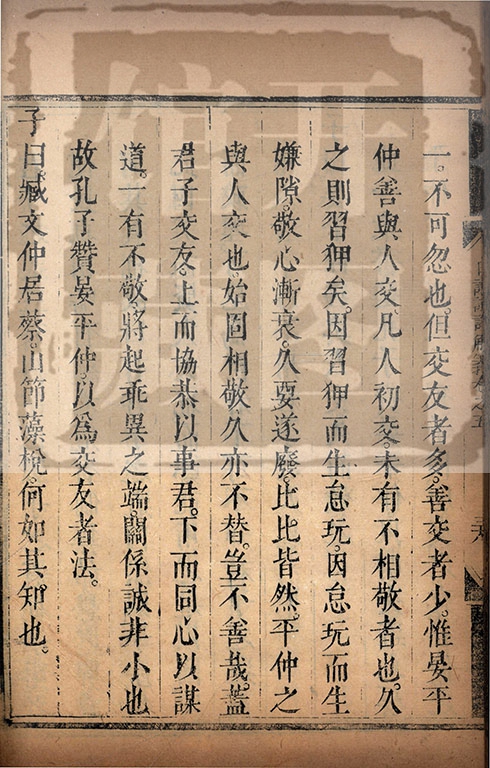 一。不可忽也。但交友者多。善交者少。惟晏平
仲善與人交。凡人初交。未有不相敬者也。久
之則習狎矣。因習狎而生怠玩。因怠玩而生
嫌隙。敬心漸衰。久要遂廢。比比皆然。平仲之
與人交也。始固相敬。久亦不替。豈不善哉。蓋
君子交友。上而協恭以事君。下而同心以謀
道。一有不敬。將起乖異之端。關係誠非小也
故孔子贊晏平仲以爲交友者法。
子曰。臧文仲居蔡。山節藻梲。何如其知也。